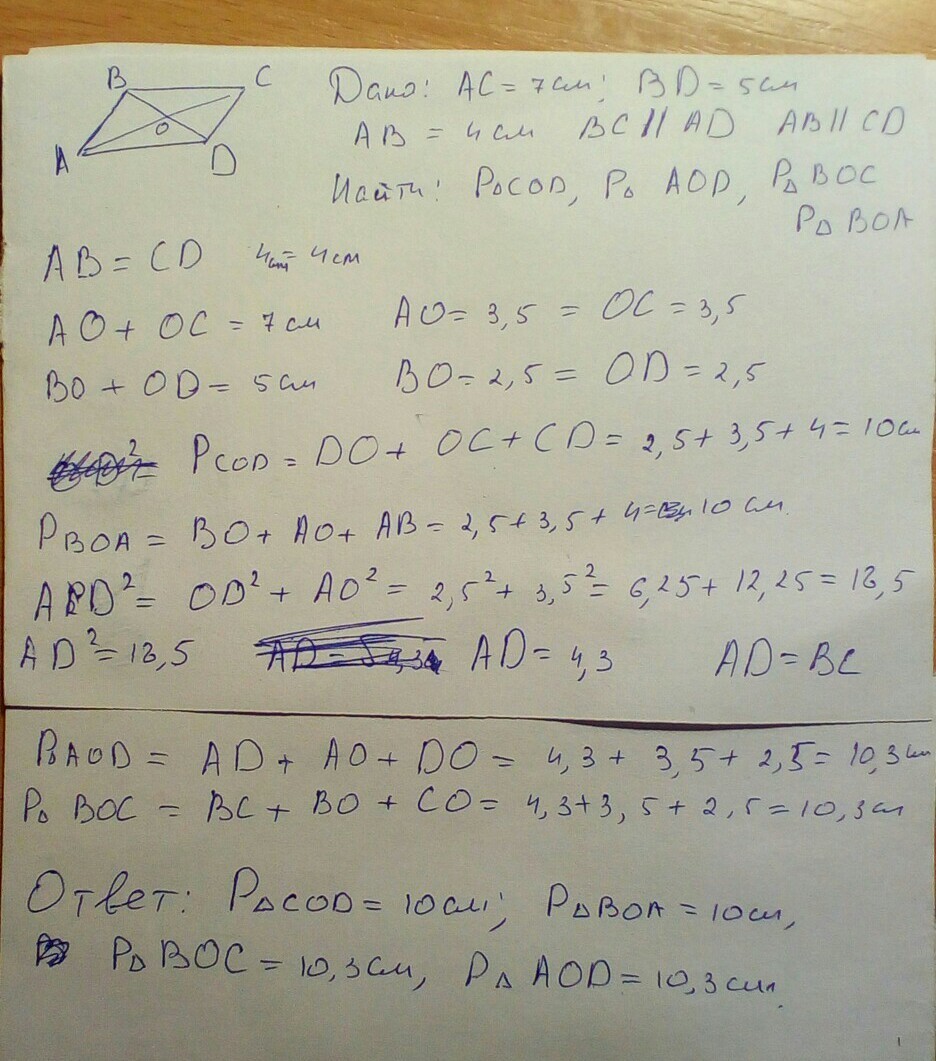 B C
A O D
Дано: AC = 7см; BD = 5см
AB = 4см BC || AD AB || CD
Найти: P△COD, P△ AOD, P△ BOC
P△ BOA
AB = CD 4см = 4см
AO + OC = 7см AO = 3,5 = OC = 3,5
BO + OD = 5см BO = 2,5 = OD = 2,5
PCOD = DO + OC + CD = 2,5 + 3,5 + 4 = 10см
PBOA = BO + AO + AB = 2,5 + 3,5 + 4 = 10см.
AD² = OD² + AO² = 2,5² + 3,5² = 6,25 + 12,25 = 18,5
AD² = 18,5 AD = 4,3 AD = BC
PAOD = AD + AO + DO = 4,3 + 3,5 + 2,5 = 10,3см
P△ BOC = BC + BO + CO = 4,3 + 3,5 + 2,5 = 10,3см
Ответ: P△COD = 10см; P△BOA = 10см,
P△ BOC = 10,3см, P△ AOD = 10,3см.